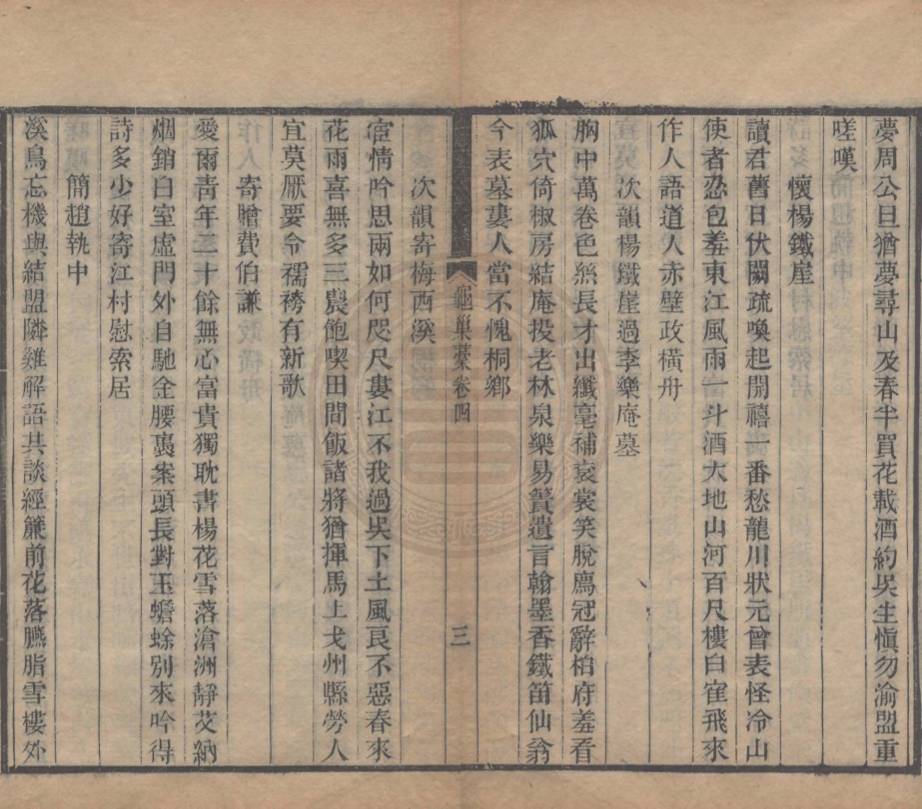 夢周公日猶夢尋山及春半買花載酒約吳生愼勿渝盟重
嗟嘆
懷楊鐵崖
讀君舊日伏闕疏喚起開禧一番愁龍川狀元曾表怪冷山
使者忍包羞東江風雨一斗酒大地山河百尺樓白隺飛來
作人語道人赤壁政橫舟
次韻楊鐵崖過李樂庵墓
胸中萬卷色絲長才出纖毫補衮裳笑脫廌冠辭柏府羞看
狐穴倚椒房結庵投老林泉樂易簀遺言翰墨香鐵笛仙翁
今表墓婁人當不愧桐鄉
龜巢藁卷四
三
次韻寄梅西溪
宦情吟思兩如何咫尺婁江不我過吳下土風良不惡春來
花雨喜無多三農飽喫田間飯諸將猶揮馬上戈州縣勞人
宜莫厭要令襦袴有新歌
寄贈費伯謙
愛爾靑年三十餘無心富貴獨耽書楊花雪落滄洲靜艾納
烟銷白室虛門外自馳金腰褭案頭長對玉蟾蜍別來吟得
詩多少好寄江村慰索居
簡趙執中
溪鳥忘機與結盟隣雞解語共談經簾前花落臙脂雪樓外